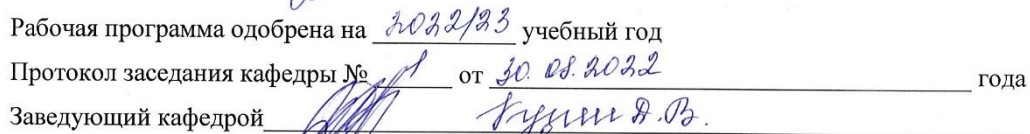 Рабочая программа одобрена на 2022/23 учебный год
Протокол заседания кафедры № 1 от 30.08.2022 года
Заведующий кафедрой Д.В.